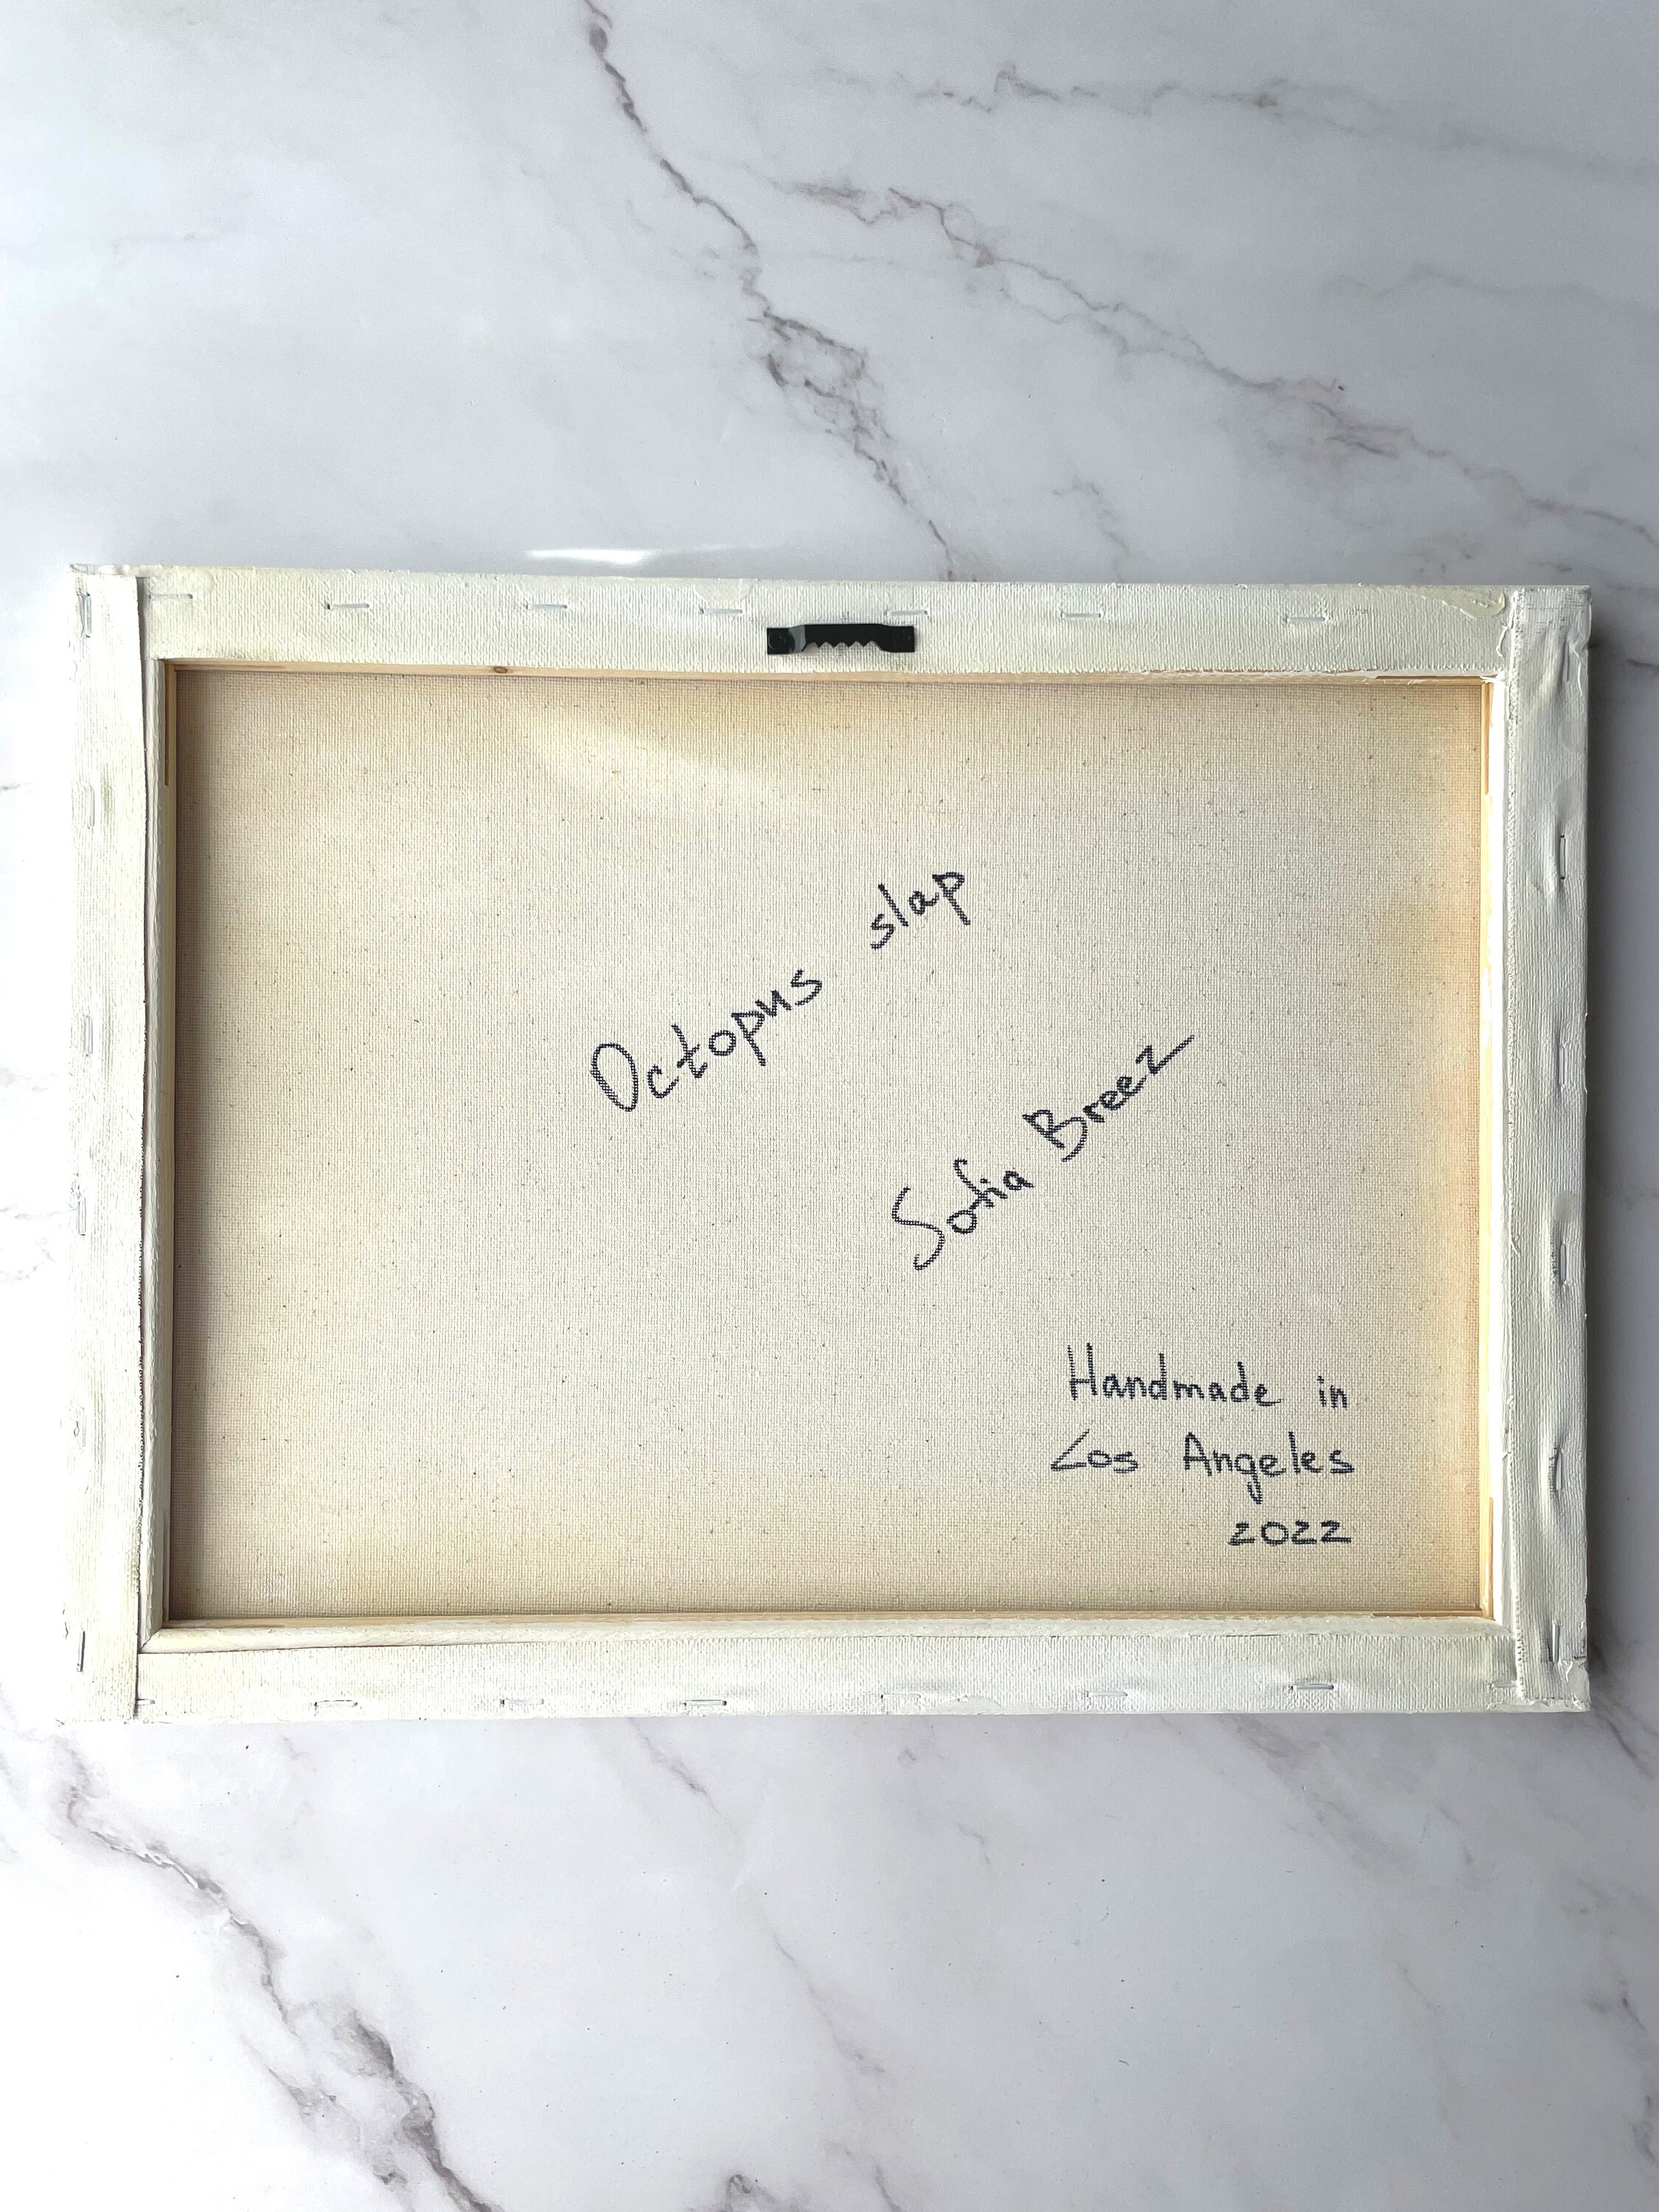 Octopus slap
Sofia Breez
Handmade in
Los Angeles
2022